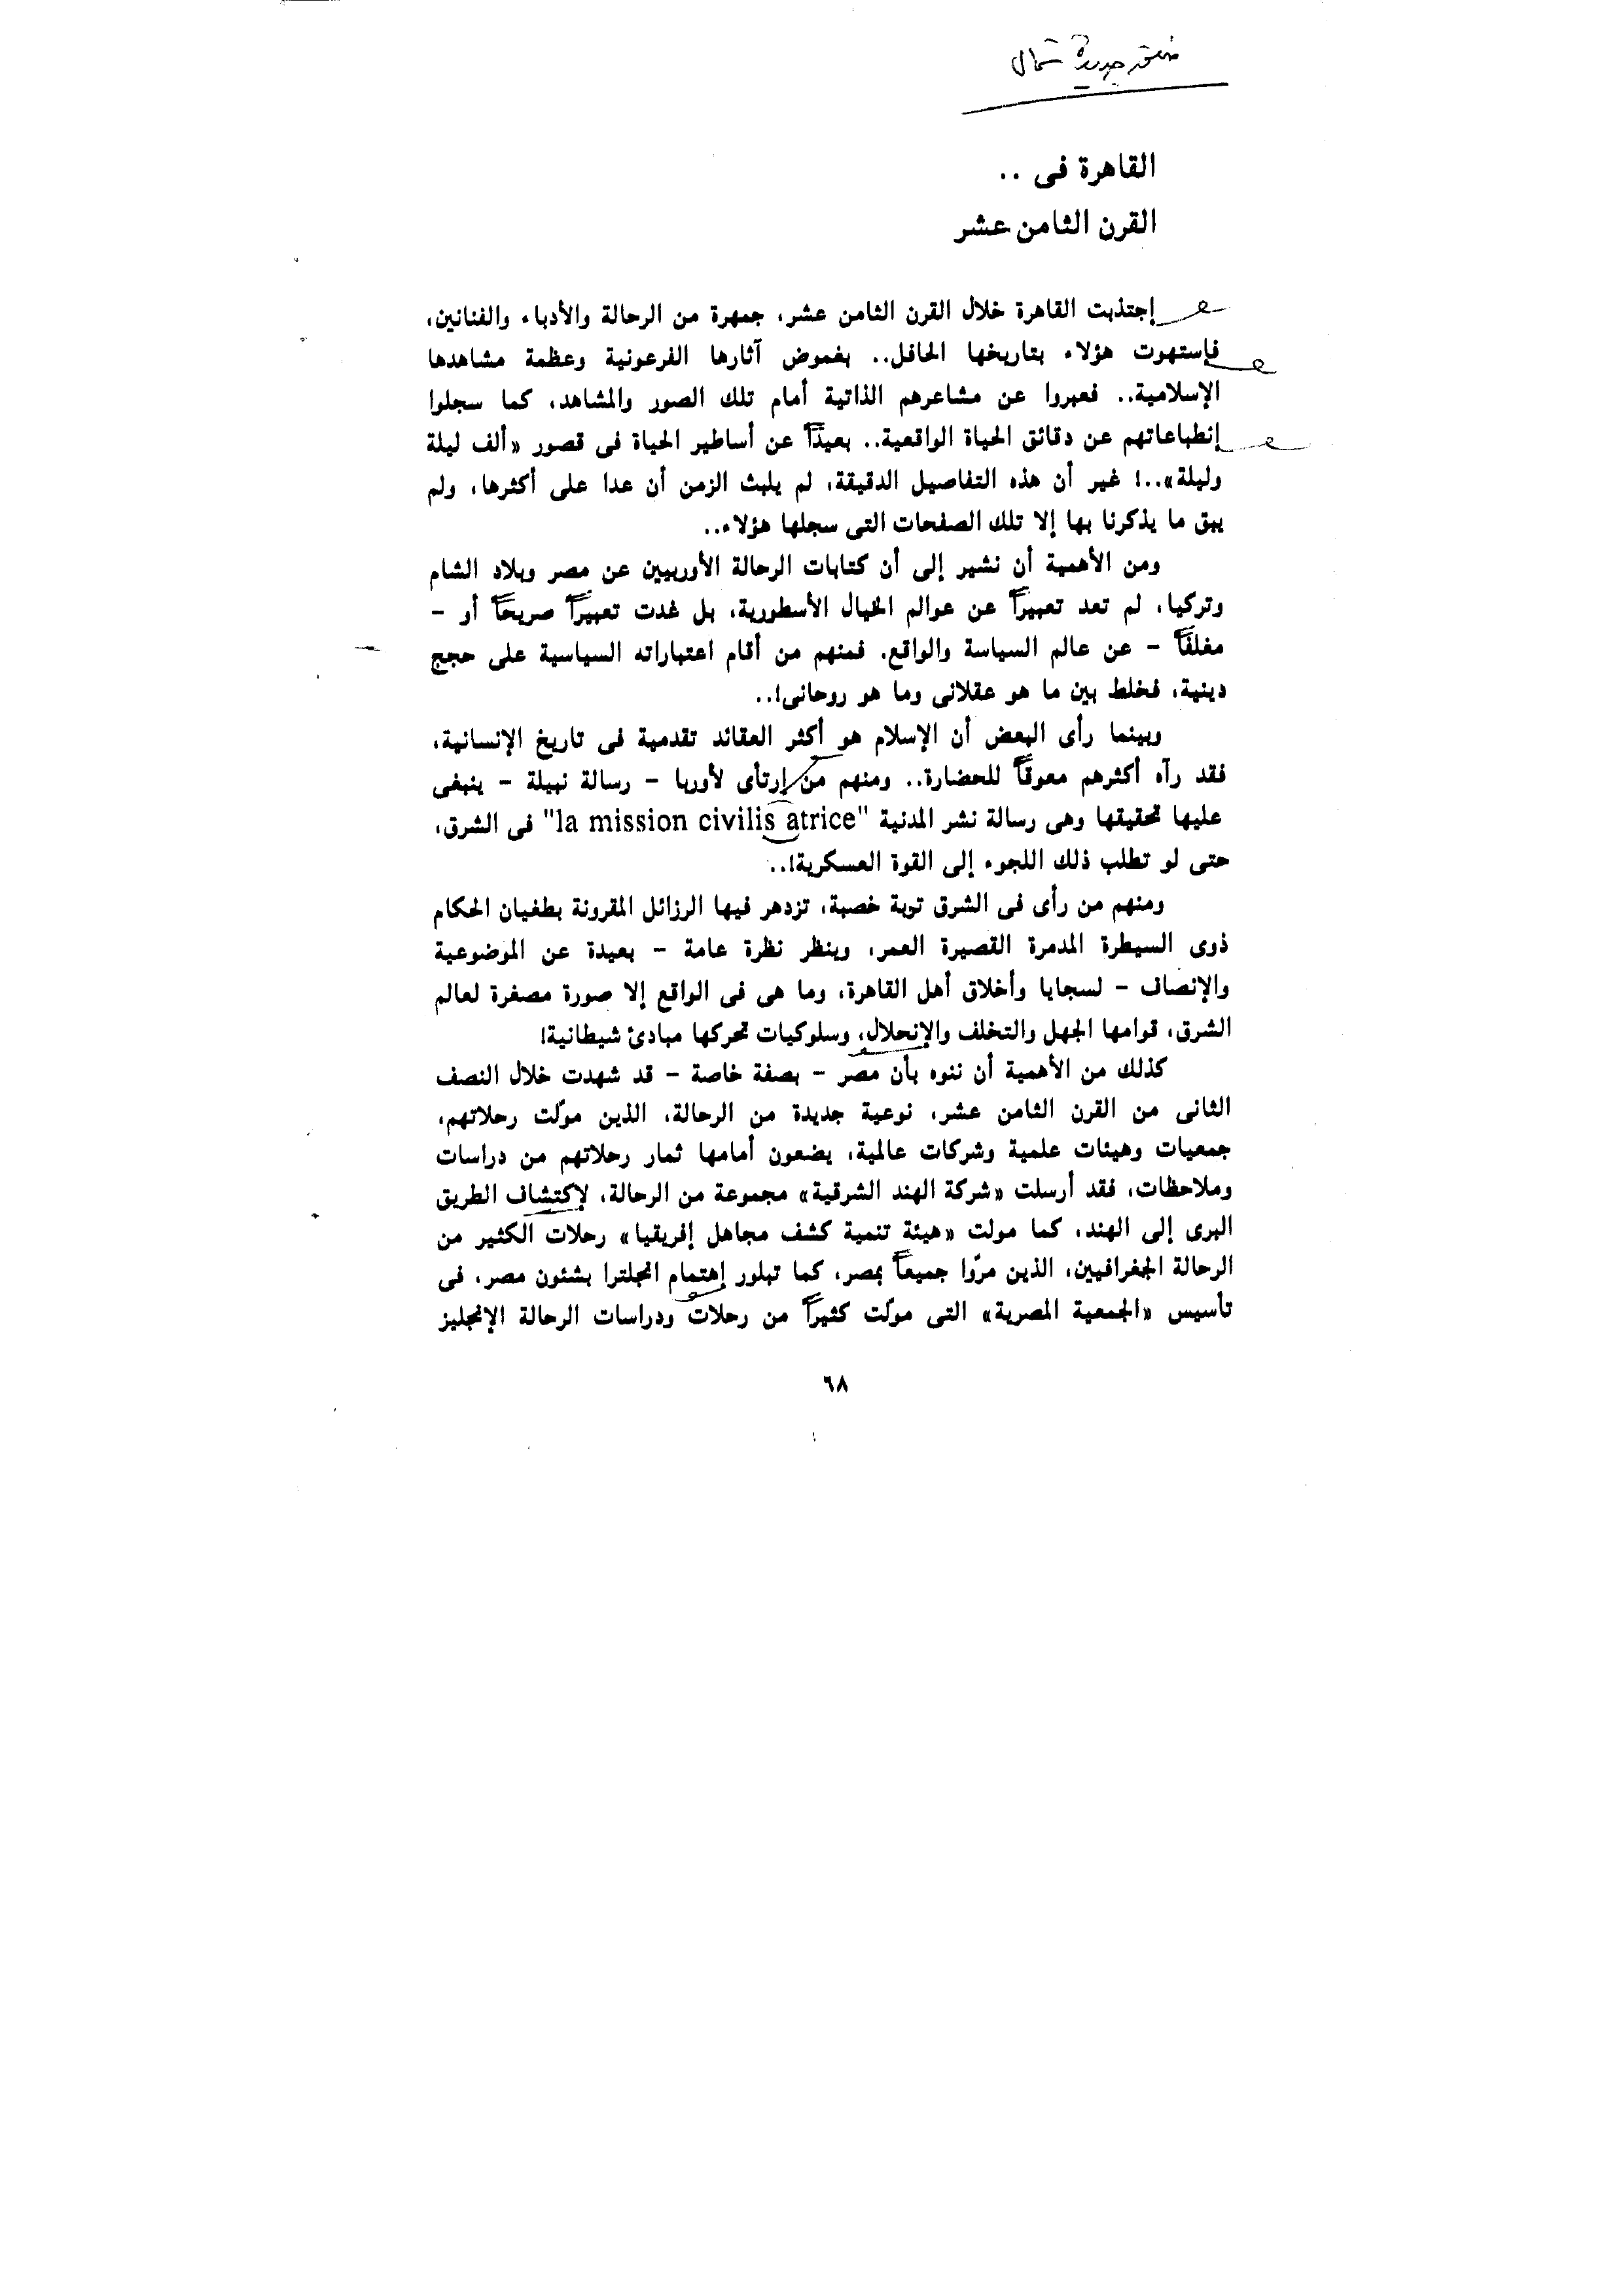 جديدة شمال
القاهرة فى ..
القرن الثامن عشر
إجتذبت القاهرة خلال القرن الثامن عشر، جمهرة من الرحالة والأدباء والفنانين،
فإستهوت هؤلاء بتاريخها الحافل.. بغموض آثارها الفرعونية وعظمة مشاهدها
الإسلامية.. فعبروا عن مشاعرهم الذاتية أمام تلك الصور والمشاهد، كما سجلوا
إنطباعاتهم عن دقائق الحياة الواقعية.. بعيدًا عن أساطير الحياة فى قصور «ألف ليلة
وليلة»..! غير أن هذه التفاصيل الدقيقة، لم يلبث الزمن أن عدا على أكثرها، ولم
يبق ما يذكرنا بها إلا تلك الصفحات التى سجلها هؤلاء..
ومن الأهمية أن نشير إلى أن كتابات الرحالة الأوربيين عن مصر وبلاد الشام
وتركيا، لم تعد تعبيرًا عن عوالم الخيال الأسطورية، بل غدت تعبيرًا صريحًا أو -
مغلفًا - عن عالم السياسة والواقع. فمنهم من أقام اعتباراته السياسية على حجج
دينية، فخلط بين ما هو عقلانى وما هو روحانى!..
وبينما رأى البعض أن الإسلام هو أكثر العقائد تقدمية فى تاريخ الإنسانية،
فقد رآه أكثرهم معوقًا للحضارة.. ومنهم من إرتأى لأوربا - رسالة نبيلة - ينبغى
عليها تحقيقها وهى رسالة نشر المدنية "la mission civilis atrice" فى الشرق،
حتى لو تطلب ذلك اللجوء إلى القوة العسكرية!..
ومنهم من رأى فى الشرق توبة خصبة، تزدهر فيها الرزائل المقرونة بطغيان الحكام
ذوى السيطرة المدمرة القصيرة العمر، وينظر نظرة عامة - بعيدة عن الموضوعية
والإنصاف - لسجايا وأخلاق أهل القاهرة، وما هى فى الواقع إلا صورة مصغرة لعالم
الشرق، قوامها الجهل والتخلف والإنحلال، وسلوكيات تحركها مبادئ شيطانية!
كذلك من الأهمية أن ننوه بأن مصر - بصفة خاصة - قد شهدت خلال النصف
الثانى من القرن الثامن عشر، نوعية جديدة من الرحالة، الذين موّلت رحلاتهم،
جمعيات وهيئات علمية وشركات عالمية، يضعون أمامها ثمار رحلاتهم من دراسات
وملاحظات، فقد أرسلت «شركة الهند الشرقية» مجموعة من الرحالة، لإكتشاف الطريق
البرى إلى الهند، كما مولت «هيئة تنمية كشف مجاهل إفريقيا» رحلات الكثير من
الرحالة الجغرافيين، الذين مرّوا جميعًا بمصر، كما تبلور إهتمام انجلترا بشئون مصر، فى
تأسيس «الجمعية المصرية» التى موّلت كثيرًا من رحلات ودراسات الرحالة الإنجليز
٦٨